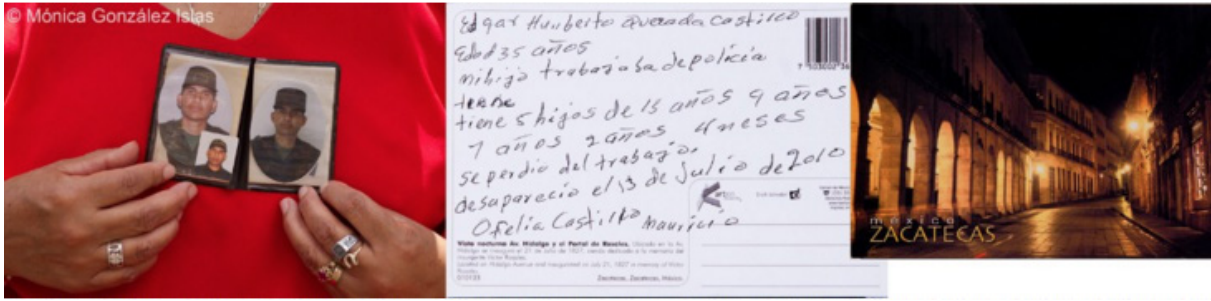 © Mónica González Islas
Edgar Humberto Quezada Castillo
Edad 35 años
mi hijo trabajaba de policia
tiene 5 hijos de 15 años 9 años
7 años 2 años 4 meses
se perdio del trabajo.
desaparecio el 13 de Julio de 2010
Ofelia Castillo Mauricio
Vista nocturna Av. Hidalgo y el Portal de Rosales.
Zacatecas, Zacatecas, México.
méxico
ZACATECAS